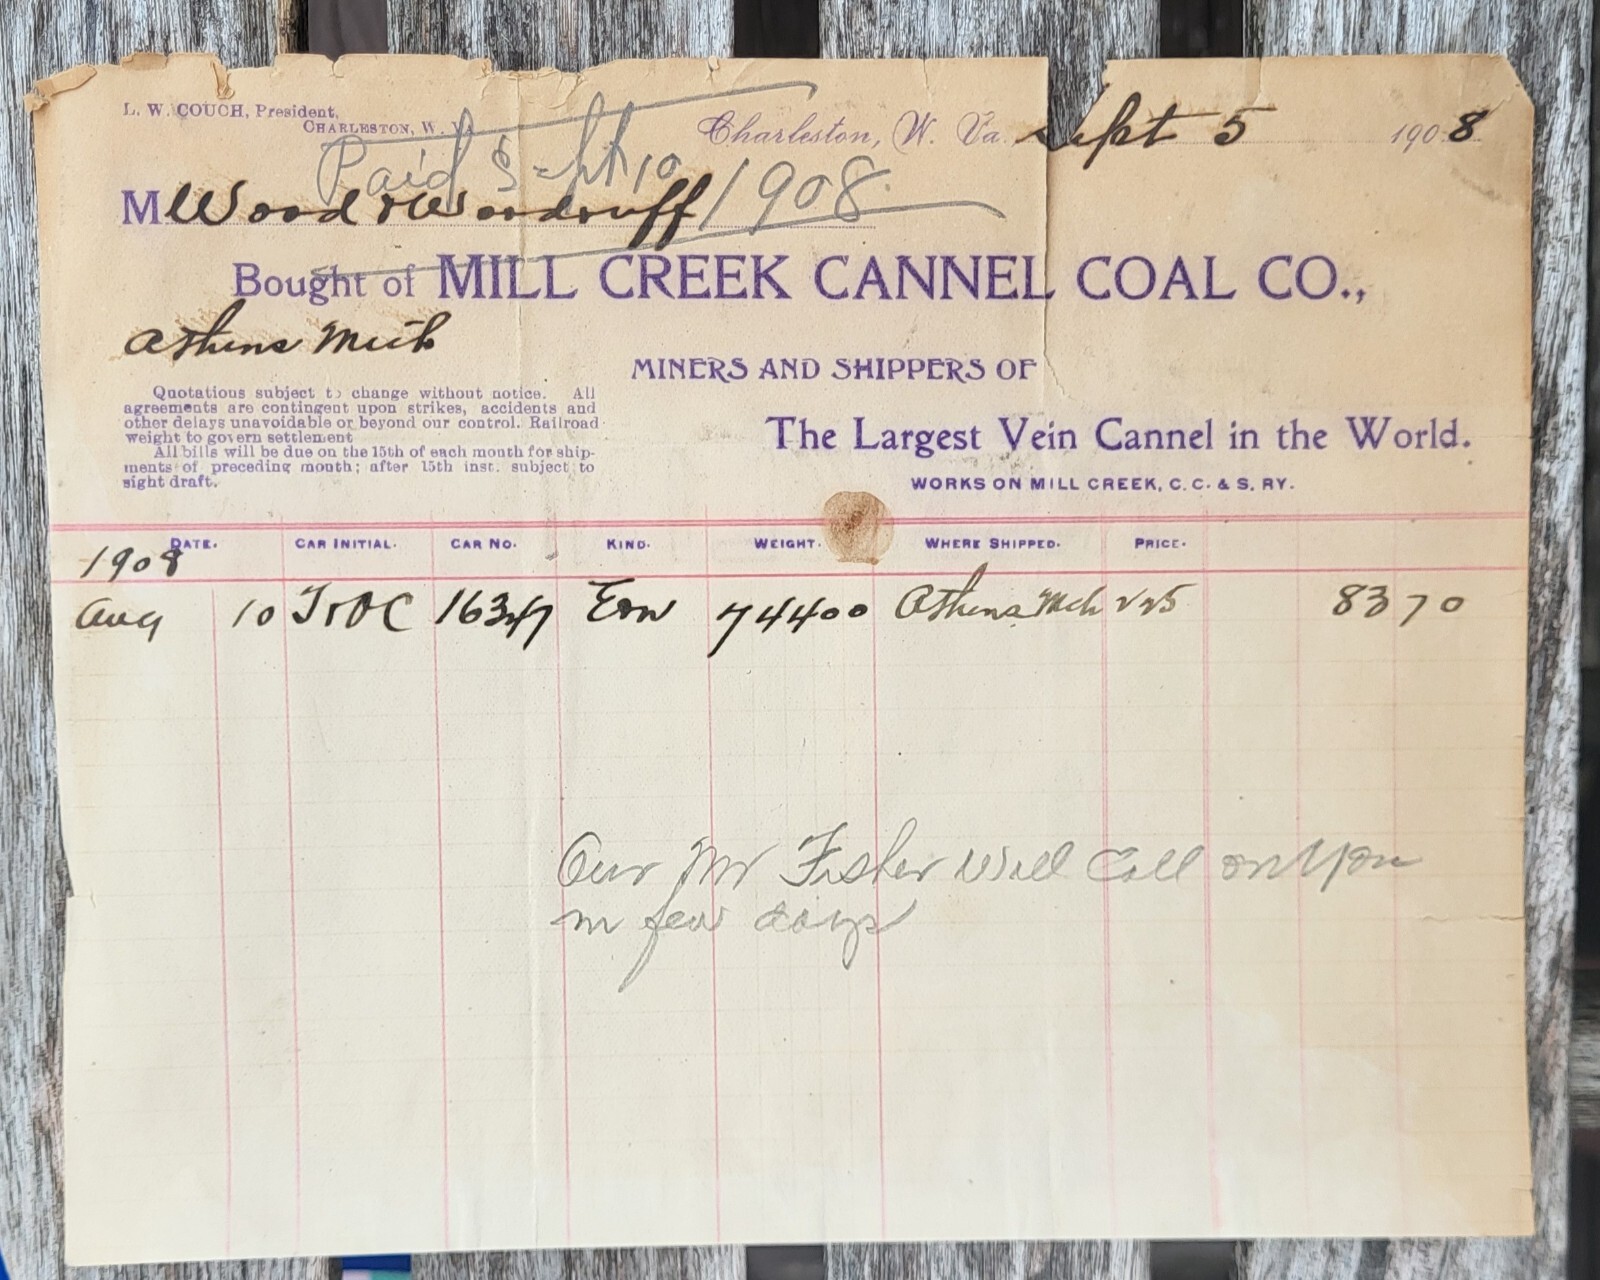 L. W. COUCH, President,
CHARLESTON, W. V
Charleston, W. Va. Sept 5 1908
Paid Sept 10 1908
M Wood & Woodruff
Bought of MILL CREEK CANNEL COAL CO.,
Athens Mich
MINERS AND SHIPPERS OF
The Largest Vein Cannel in the World.
WORKS ON MILL CREEK, C. C. & S. RY.
Quotations subject to change without notice. All
agreements are contingent upon strikes, accidents and
other delays unavoidable or beyond our control. Railroad
weight to govern settlement
All bills will be due on the 15th of each month for ship-
ments of preceding month; after 15th inst. subject to
sight draft.
DATE. CAR INITIAL. CAR NO. KIND. WEIGHT. WHERE SHIPPED. PRICE.
1908
Aug 10 T&OC 16347 74400 Athens Mch 225 83 70
Our Mr Fisher Will Call on You
in few days